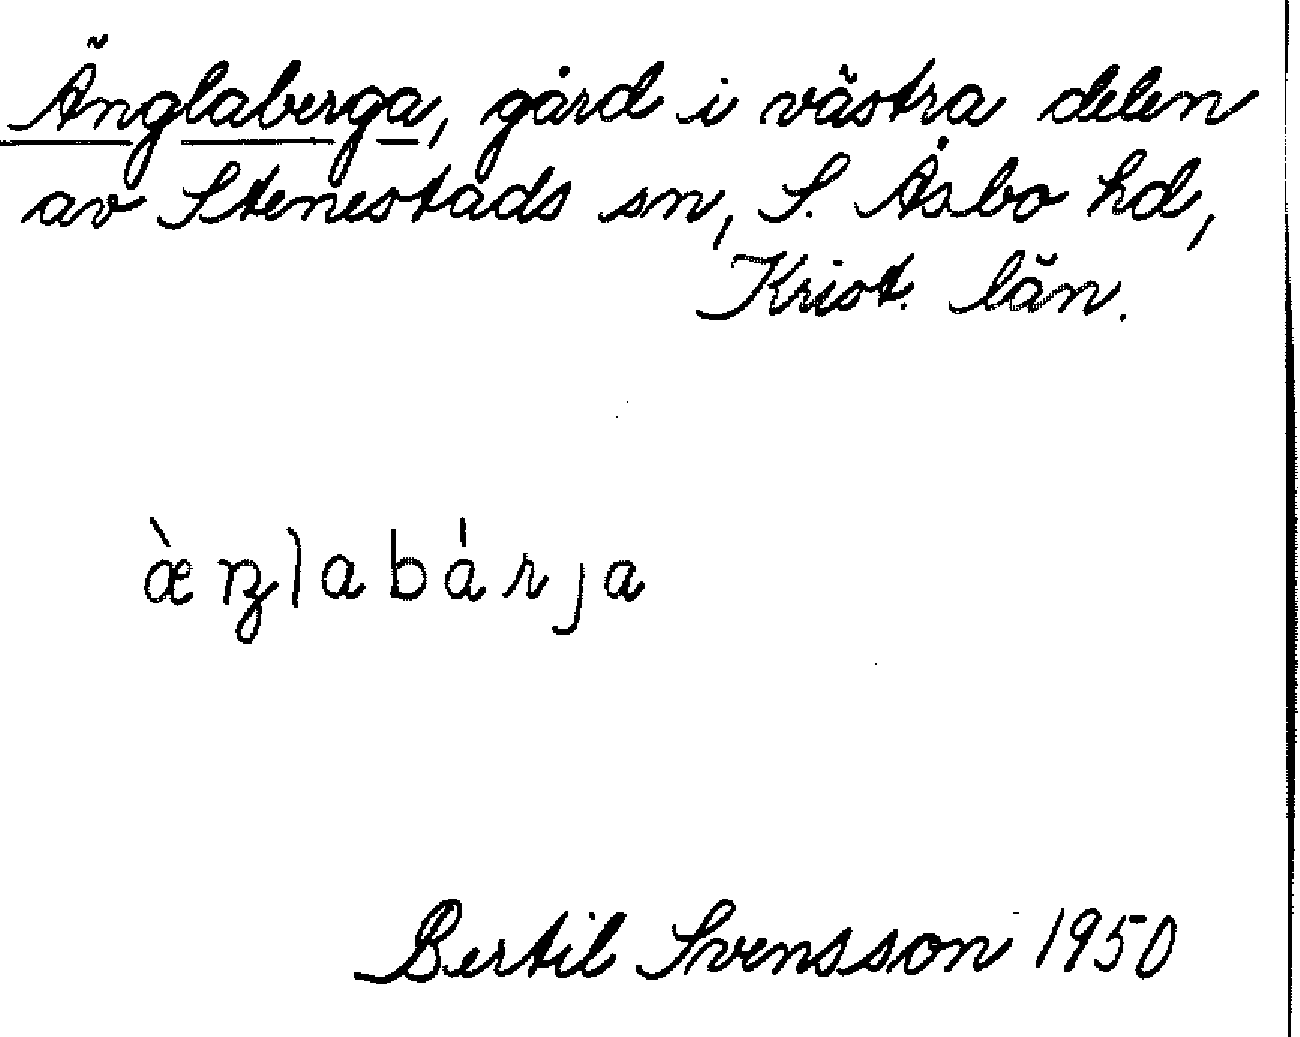 Änglaberga, gård i västra delen
av Stenestads sn, S. Åsbo hd,
Krist. län.
æ̀ŋlabárja
Bertil Svensson 1950